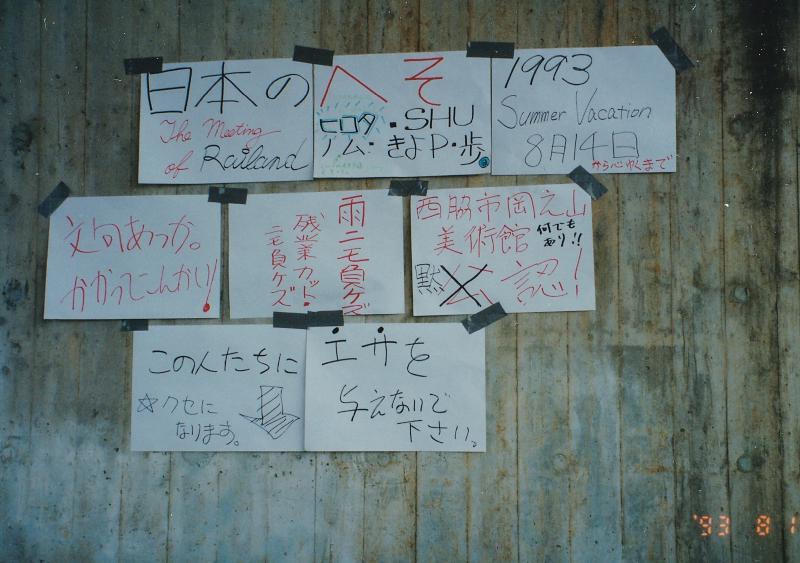 日本の
The Meeting
of Railand
へそ
ヒロタ・SHU
ノム・きよP・歩
1993
Summer Vacation
8月14日
から心ゆくまで
文句あっか。
かかってこんかい!
雨ニモ負ケズ
残業カット・
ニモ負ケズ
西脇市岡之山
美術館
何でも
あり!!
黙公認!
このんたちに
☆クセに
なります。
エサを
与えないで
下さい。
'93 8 1